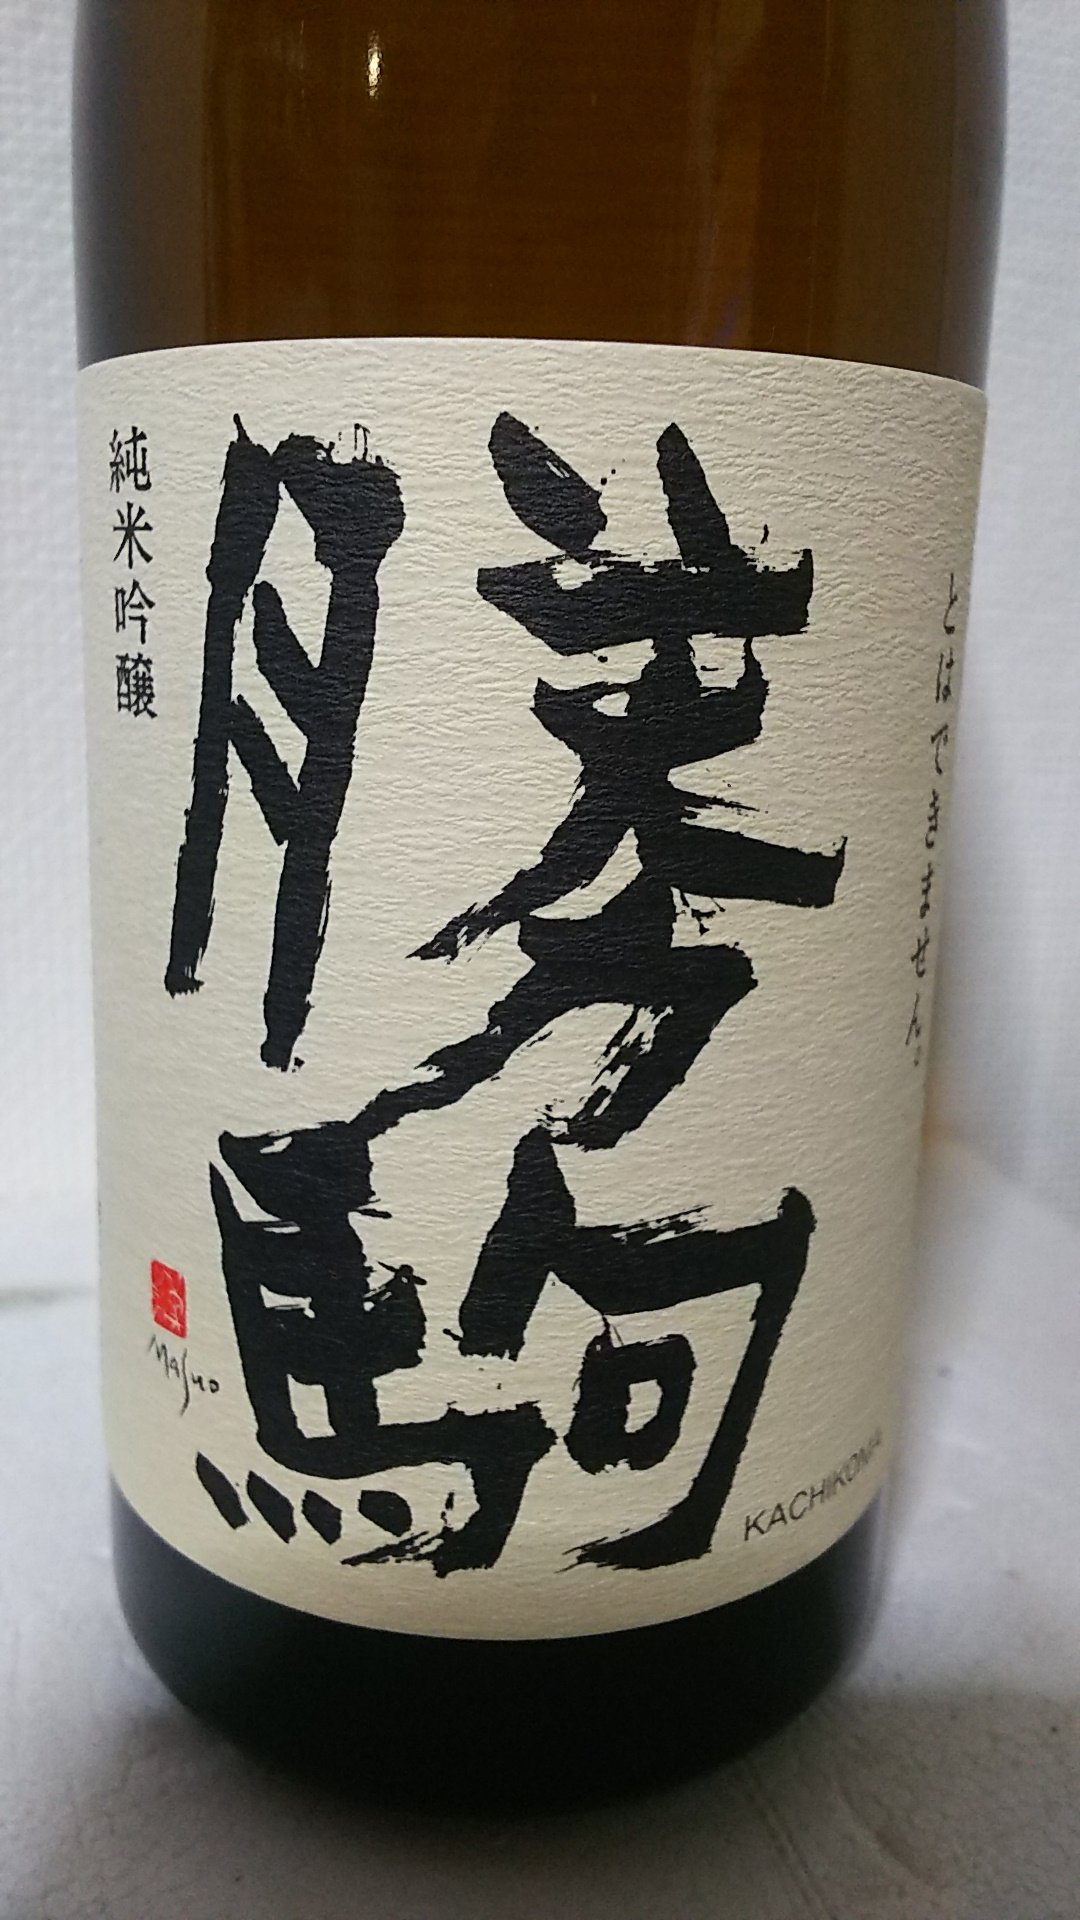 とはできません。
勝駒
純米吟醸
Masuo
KACHIKOMA